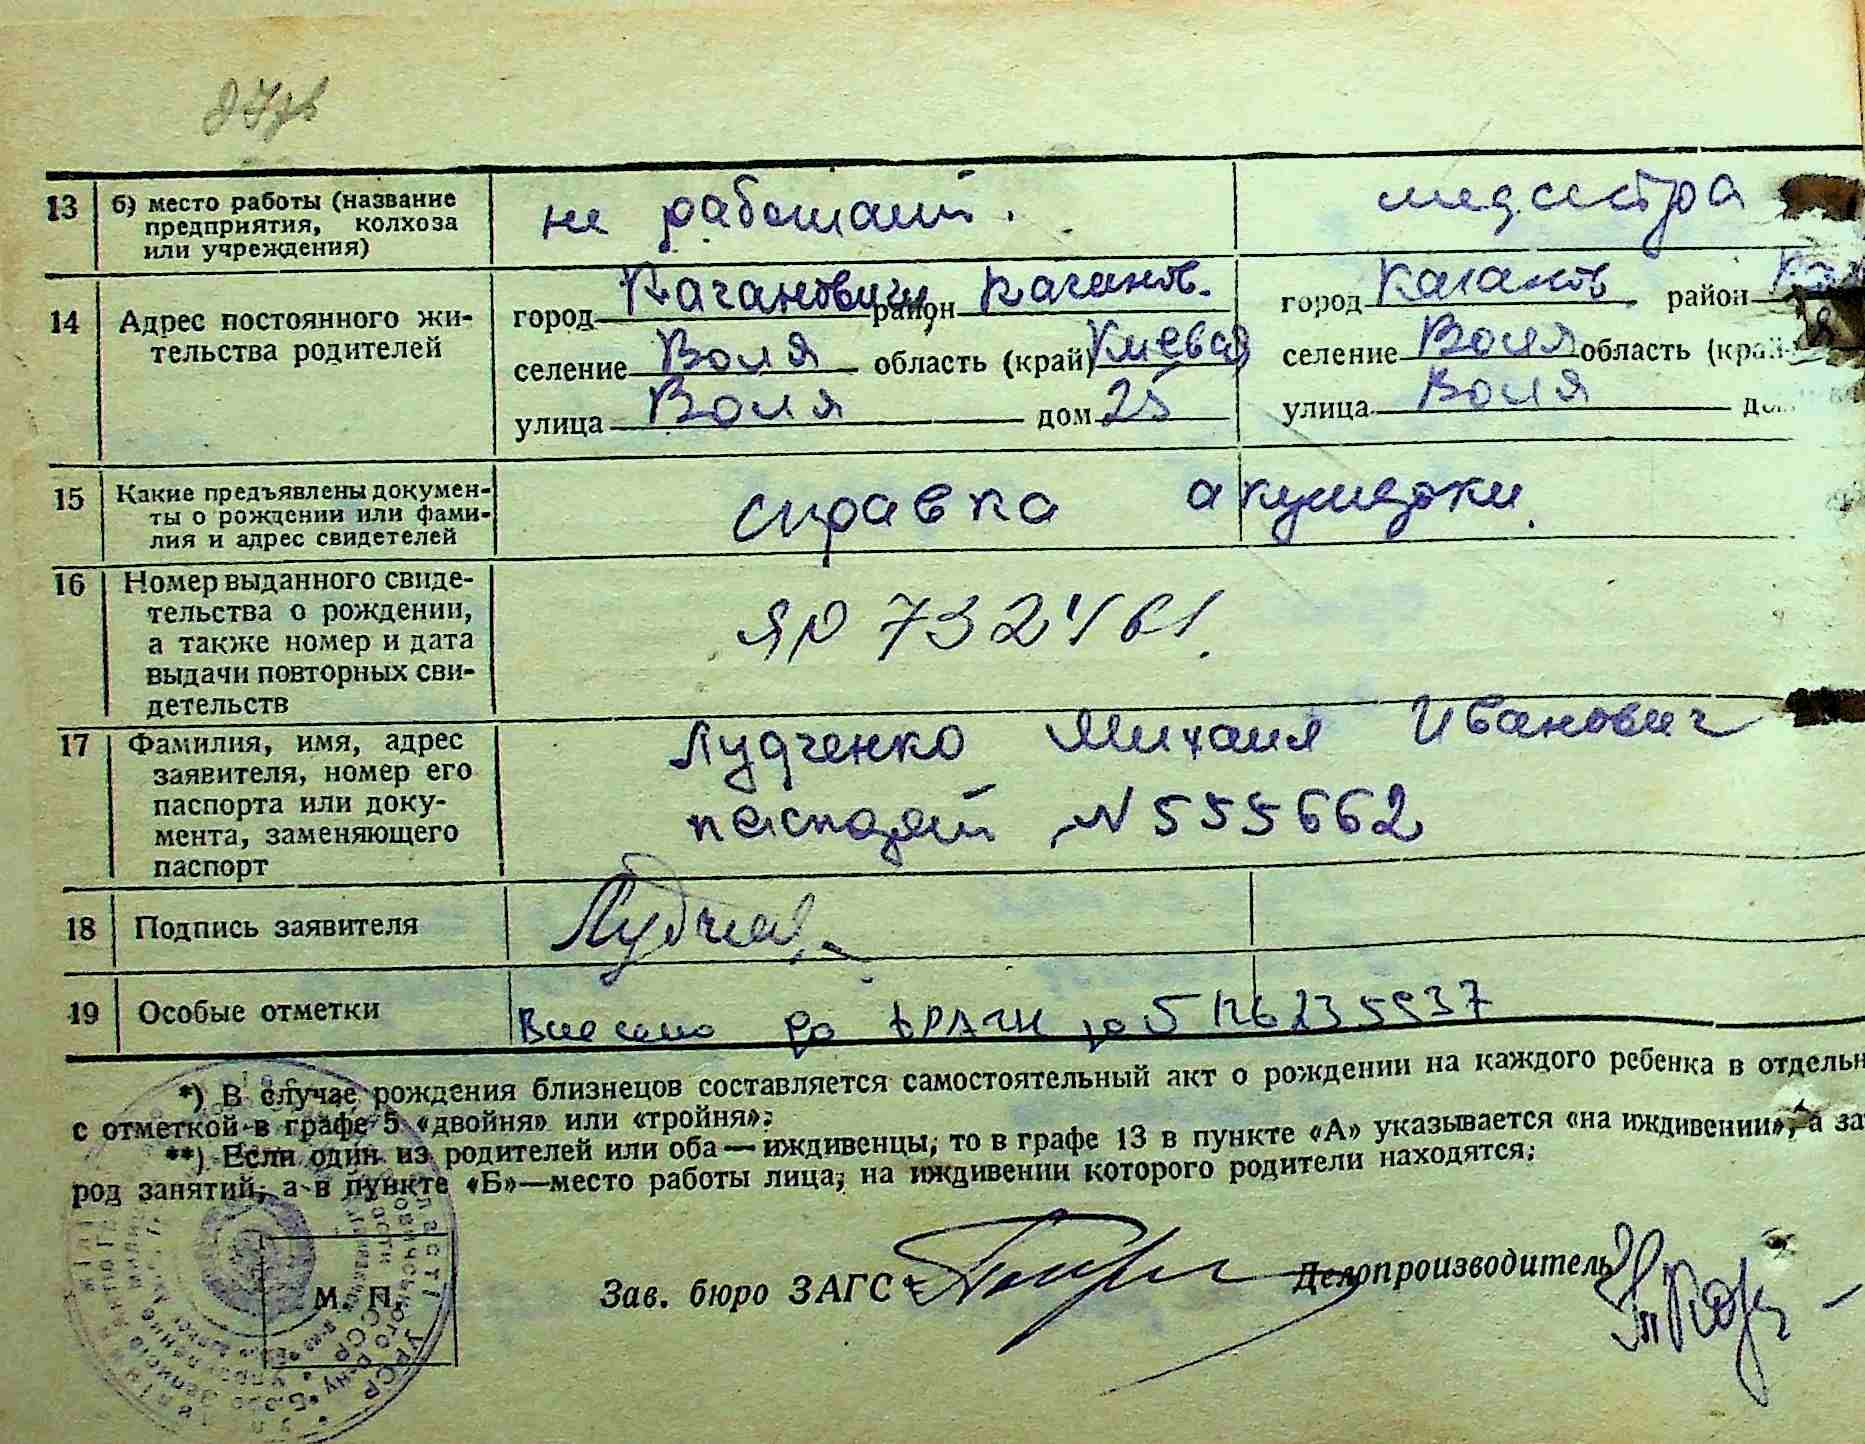 13 б) место работы (название предприятия, колхоза или учреждения) не работает. медсестра
14 Адрес постоянного жительства родителей
город Каганович район Каганов. город Каганов район
селение Воля область (край) Киевская селение Воля область (край
улица Воля дом 25 улица Воля
15 Какие предъявлены документы о рождении или фамилия и адрес свидетелей справка акушерки.
16 Номер выданного свидетельства о рождении, а также номер и дата выдачи повторных свидетельств ЯР 732461.
17 Фамилия, имя, адрес заявителя, номер его паспорта или документа, заменяющего паспорт Лудченко Михаил Иванович
паспорт N 555662
18 Подпись заявителя
19 Особые отметки Внесено до ДРАЦС за
*) В случае рождения близнецов составляется самостоятельный акт о рождении на каждого ребенка в отдельн
с отметкой в графе 5 «двойня» или «тройня»;
**) Если один из родителей или оба—иждивенцы, то в графе 13 в пункте «А» указывается «на иждивении», а за
род занятий, а в пункте «Б»—место работы лица, на иждивении которого родители находятся;
М. П.
Зав. бюро ЗАГС
Делопроизводитель